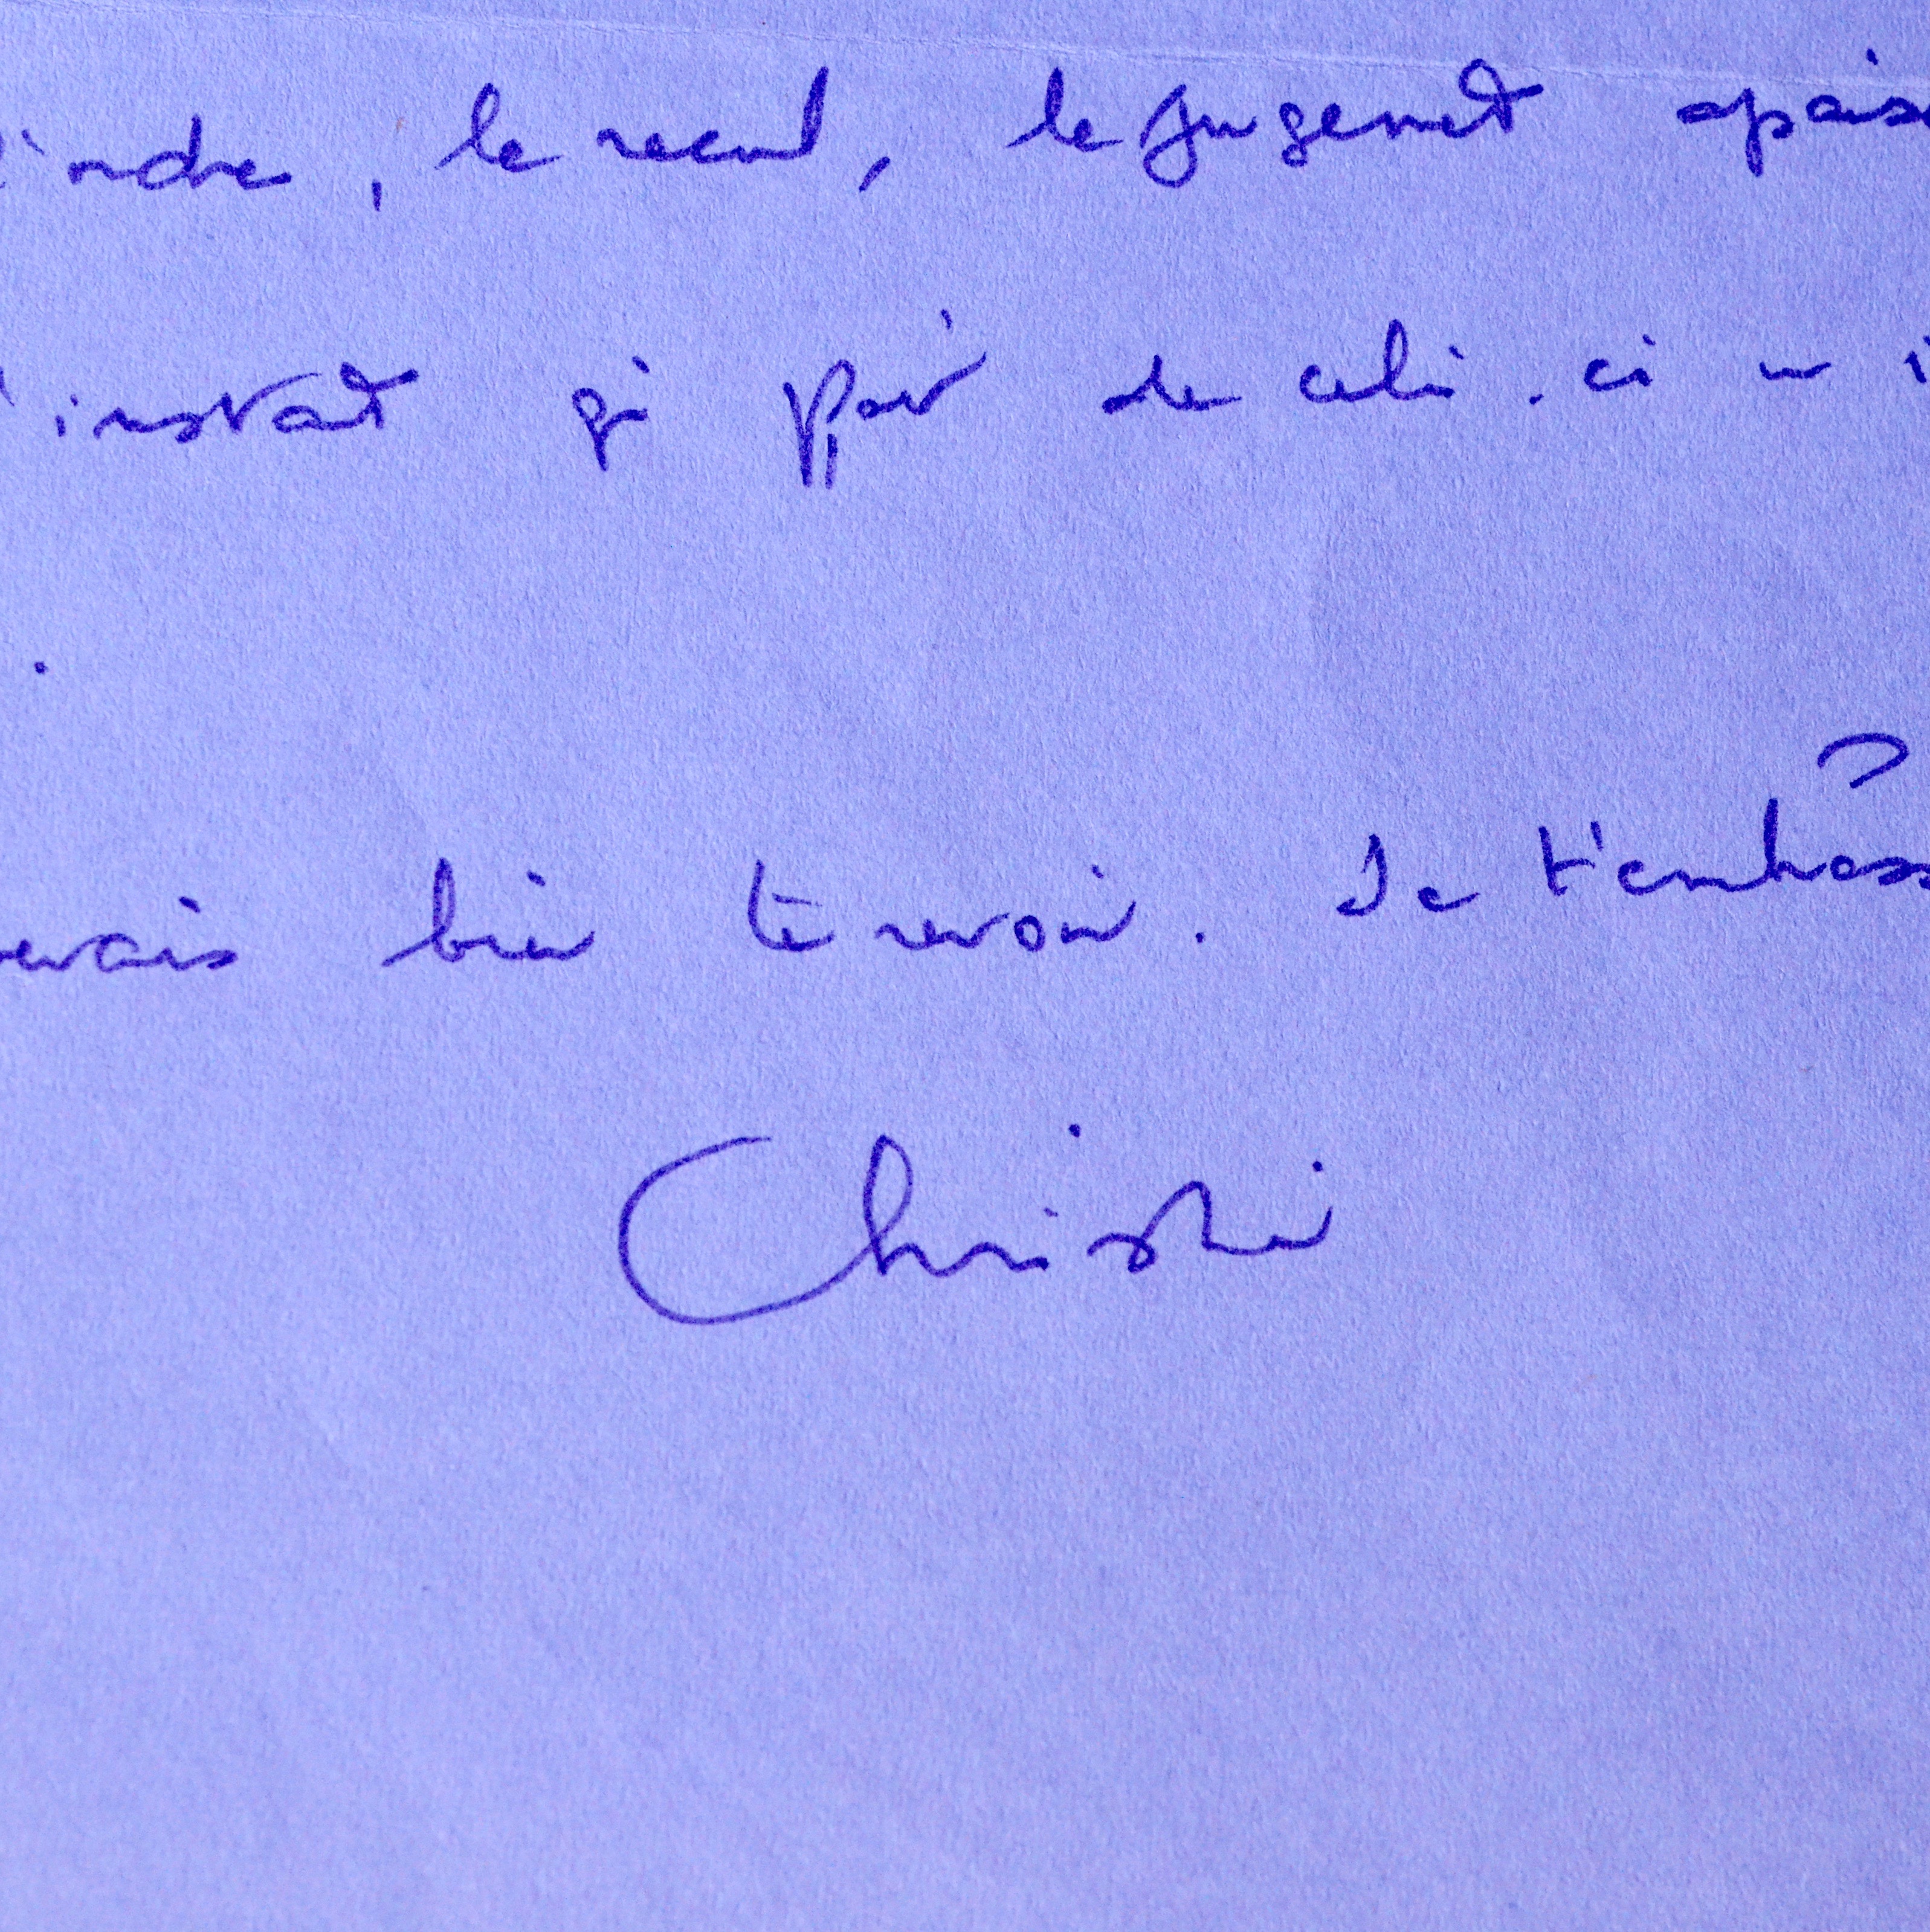 indre, le recul, le jugement apais
instant qui de celui-ci un i
.
erais bien te revoir. Je t'embrass
Christian